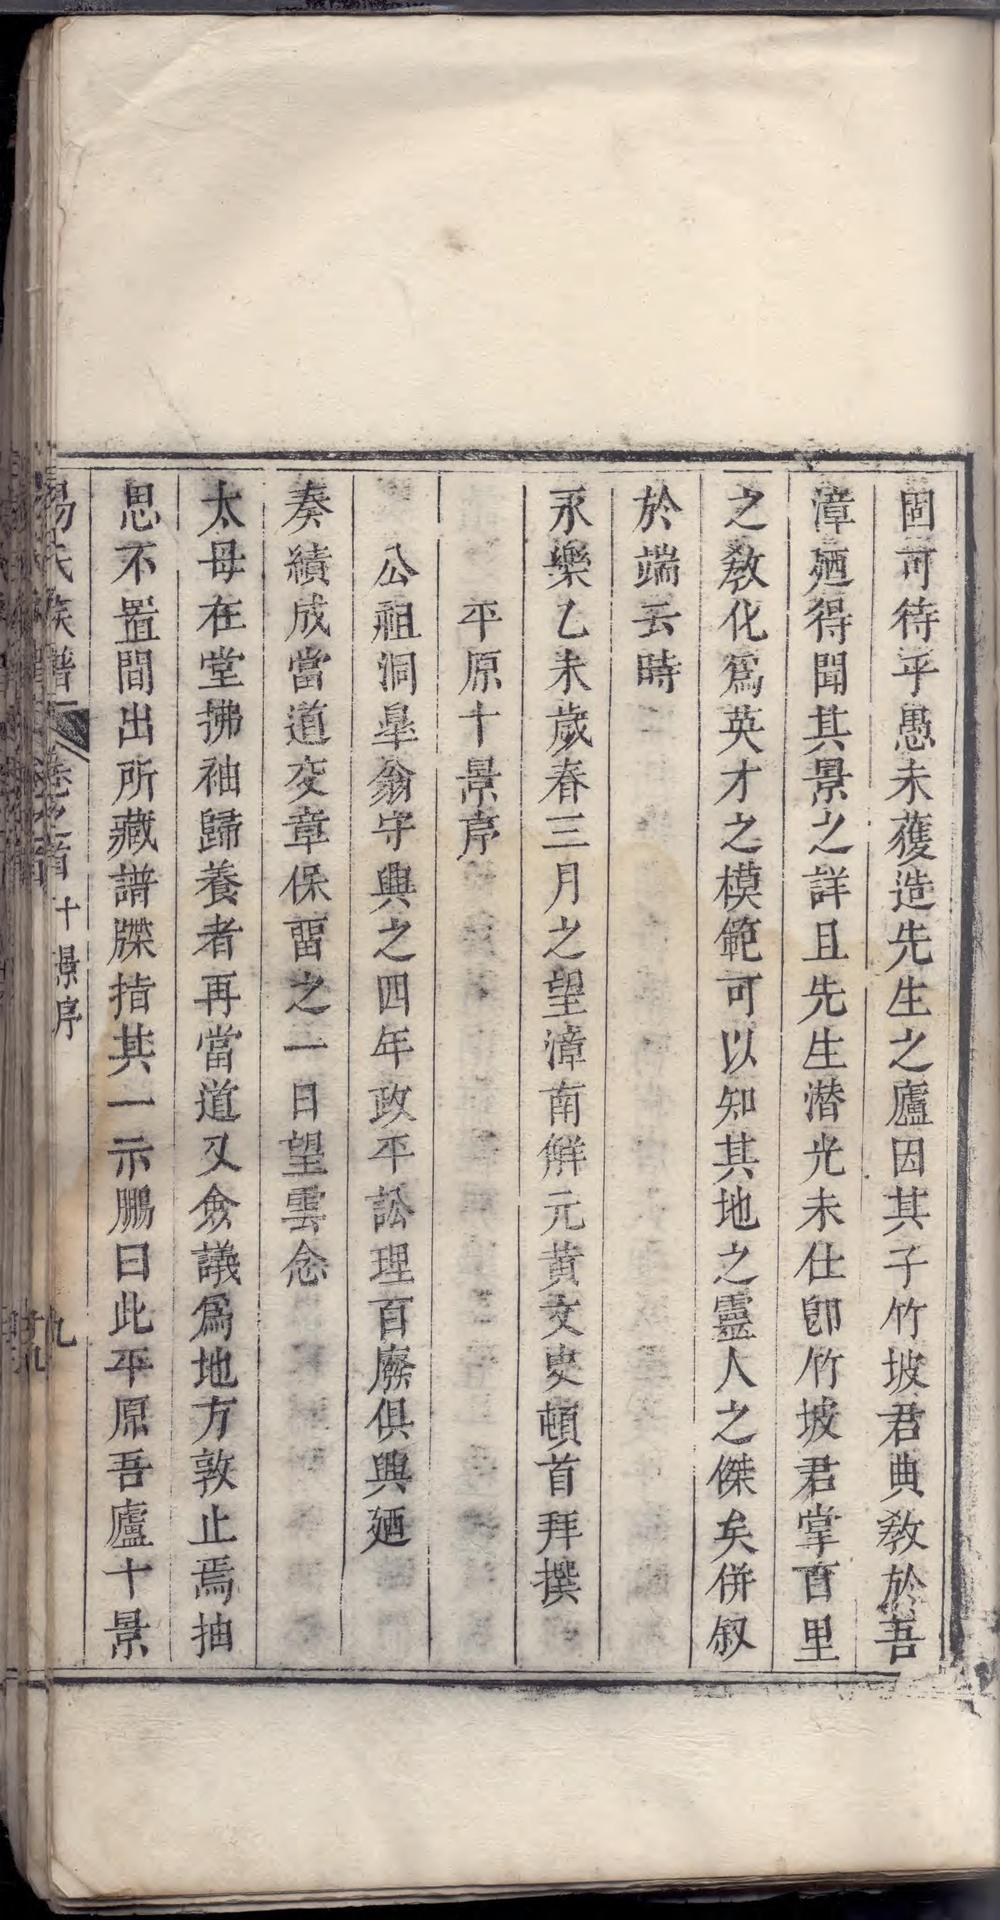 固可待乎愚未獲造先生之廬因其子竹坡君典教於吾
漳廼得聞其景之詳且先生潛光未仕卽竹坡君掌百里
之教化爲英才之模範可以知其地之靈人之傑矣併叙
於端云時
永樂乙未歲春三月之望漳南解元黃文史頓首拜撰
平原十景序
公祖洞臯翁守興之四年政平訟理百廢俱興廼
奏績成當道交章保畱之一日望雲念
太母在堂拂袖歸養者再當道又僉議爲地方敦止焉抽
思不置間出所藏譜牒指其一示鵬曰此平原吾廬十景
楊氏族譜 卷之首 十景序 九